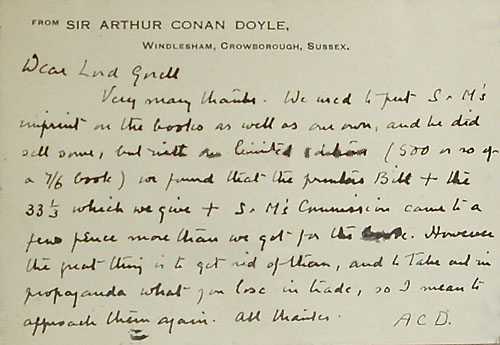 FROM SIR ARTHUR CONAN DOYLE,
WINDLESHAM, CROWBOROUGH, SUSSEX.
Dear Lord Gorell
Very many thanks. We used to put S. M's
imprint on the books as well as our own, and he did
sell some, but with limited edition (500 or so of
a 7/6 book) we found that the printers Bill + the
33 1/3 which we give + S. M's Commission came to a
few pence more than we got for the. However
the great thing is to get rid of them, and to take out in
propaganda what you lose in trade, so I mean to
approach them again. All thanks.
A C D.